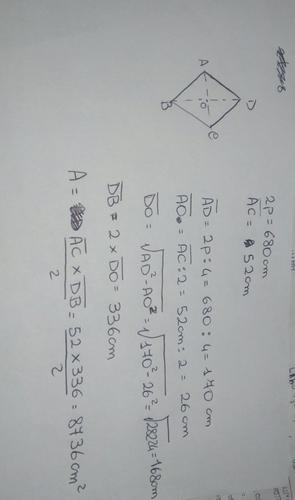 A
B
O
D
C
2p = 680cm
AC = 52cm
AD = 2p : 4 = 680 : 4 = 170 cm
AO = AC : 2 = 52cm : 2 = 26cm
DO = √AD² - AO² = √170² - 26² = √28224 = 168cm
DB = 2 × DO = 336cm
A = AC × DB / 2 = 52 × 336 / 2 = 8736cm²